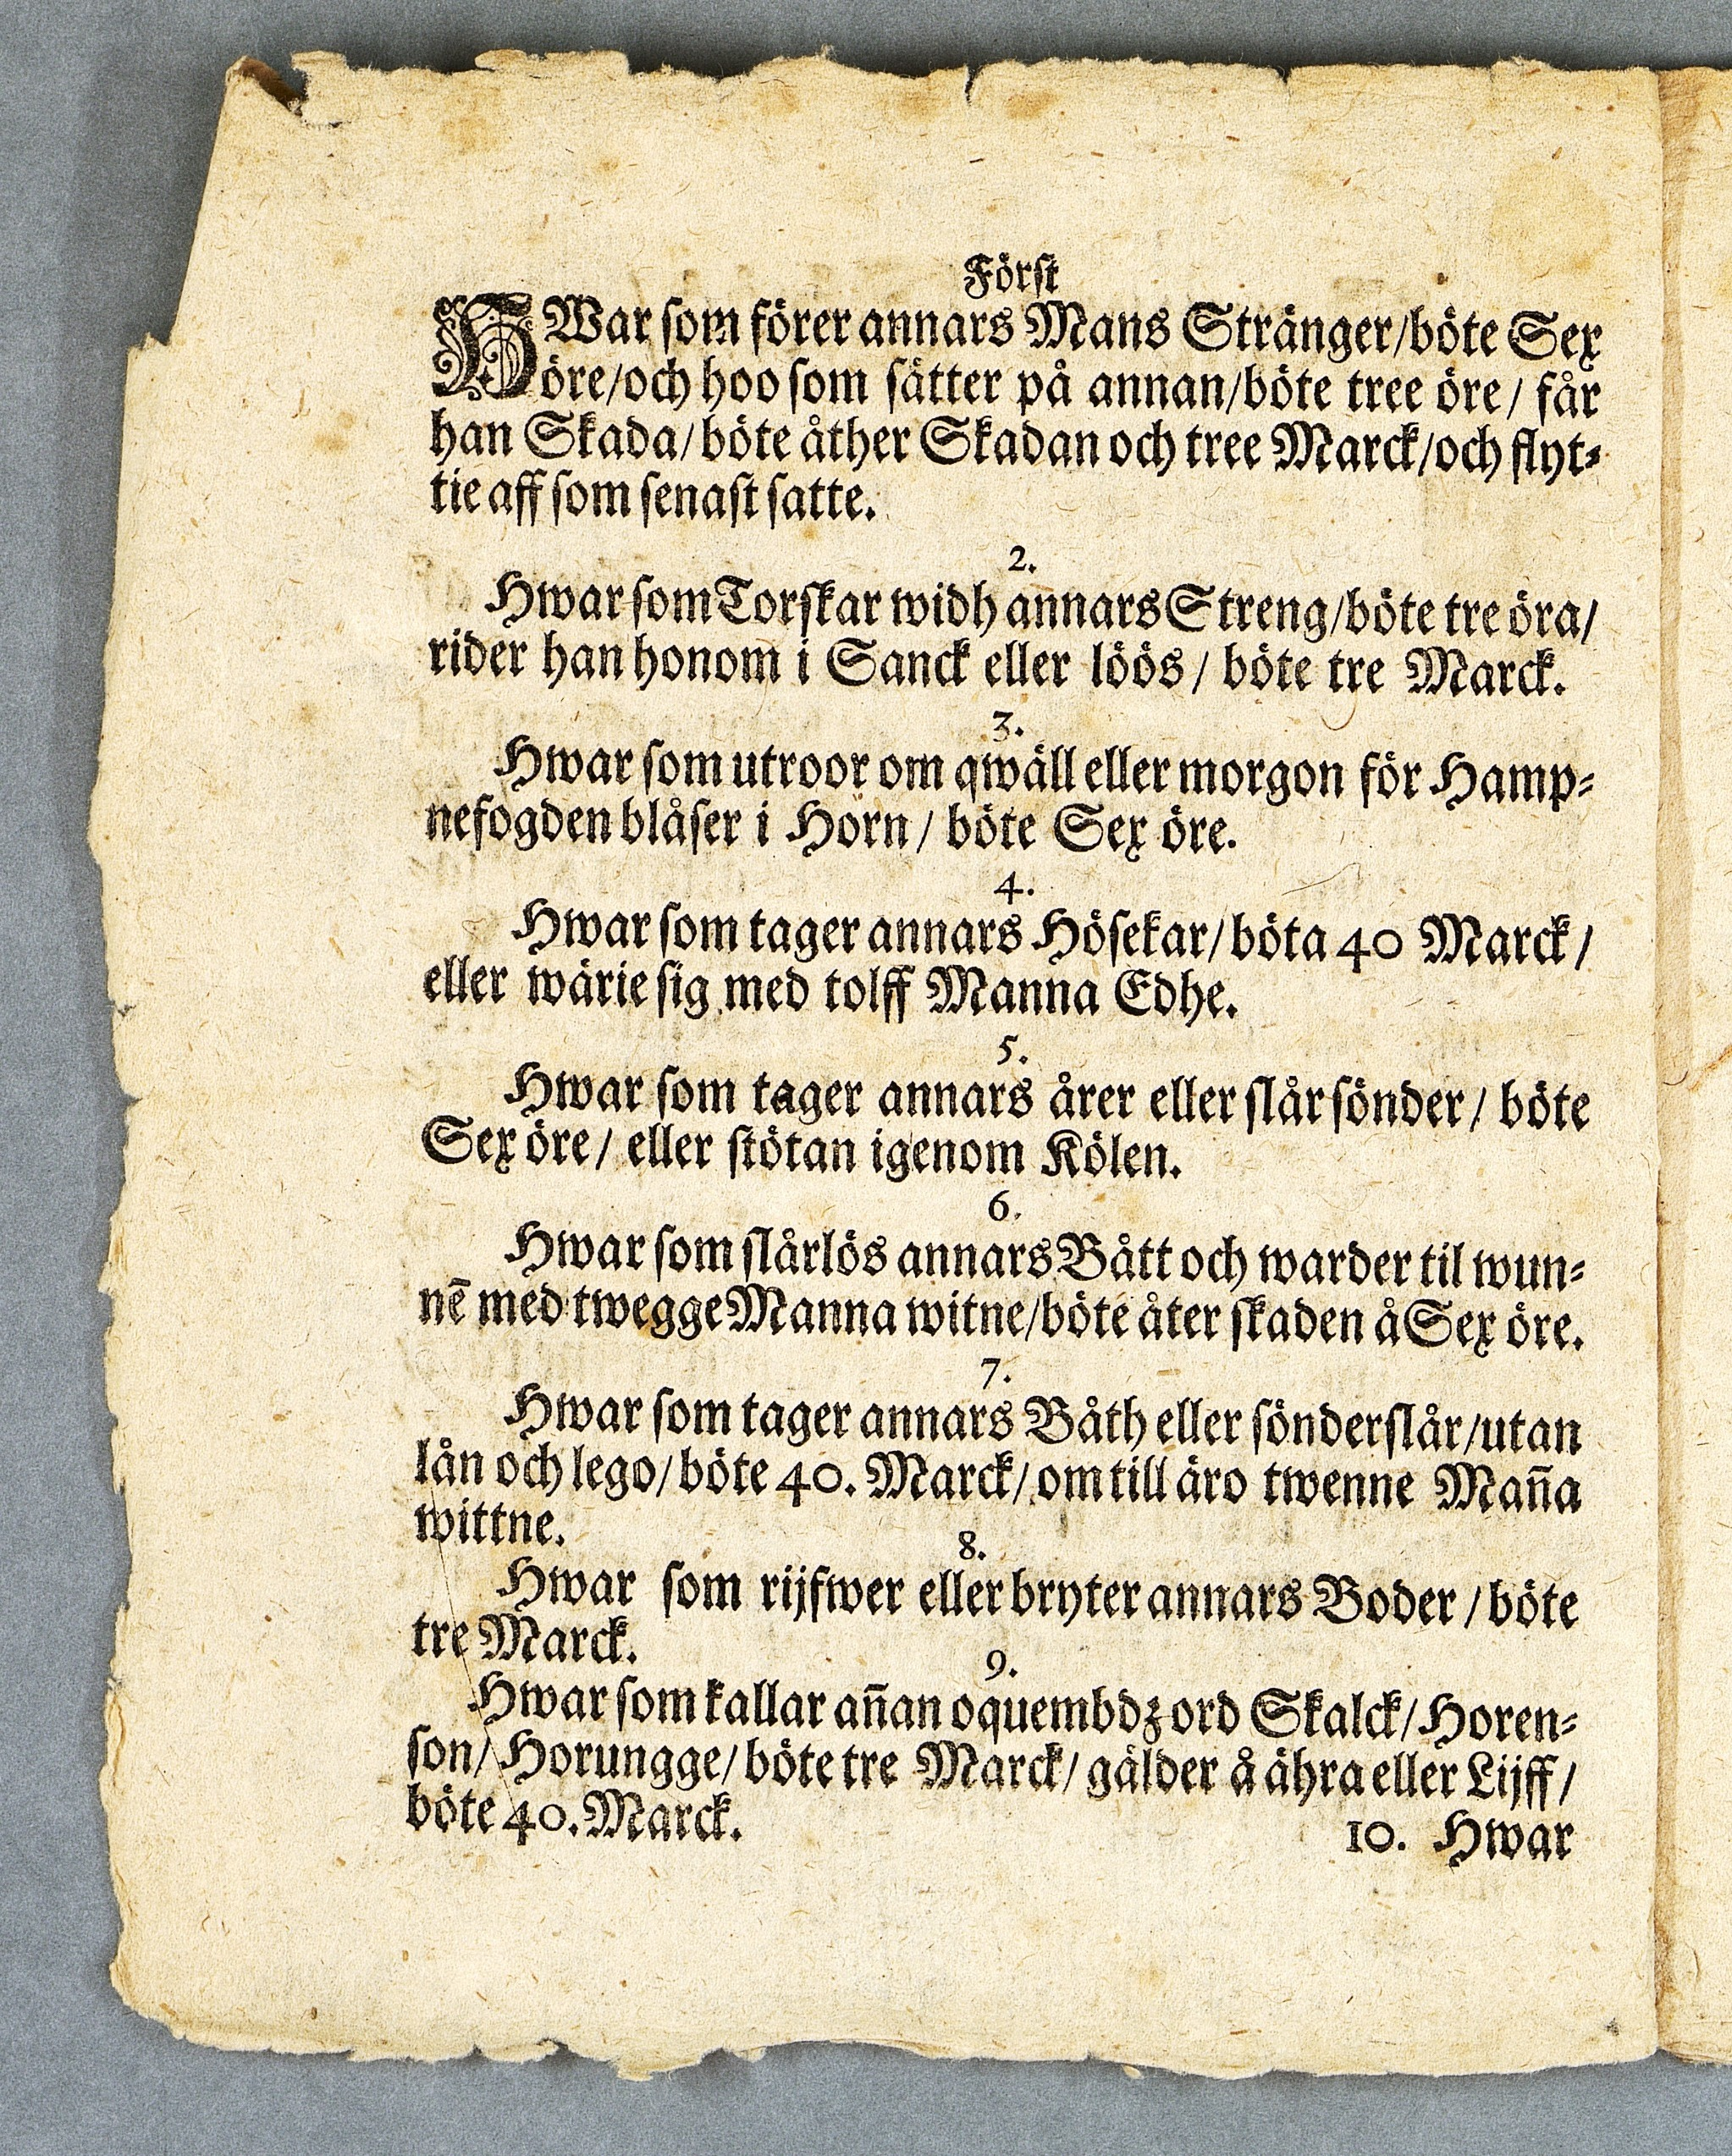 Först
HWar som förer annars Mans Stränger/böte Sex
öre/och hoo som sätter på annan/böte tree öre/ får
han Skada/böte åther Skadan och tree Marck/och flyt-
tie aff som senast satte.
2.
Hwar som Torskar widh annars Streng/böte tre öra/
rider han honom i Sanck eller löös/ böte tre Marck.
3.
Hwar som utroor om qwäll eller morgon för Hamp-
nefogden blåser i Horn/ böte Sex öre.
4.
Hwar som tager annars Hösekar/böta 40 Marck/
eller wärie sig med tolff Manna Edhe.
5.
Hwar som tager annars årer eller slår sönder/ böte
Sex öre/ eller stötan igenom Kölen.
6.
Hwar som slårlös annars Bått och warder til wun-
nē med twegge Manna witne/böte åter skaden å Sex öre.
7.
Hwar som tager annars Båth eller sönderslår/utan
lån och lego/böte 40. Marck/om till äro twenne Maña
wittne.
8.
Hwar som rijfwer eller bryter annars Boder/böte
tre Marck.
9.
Hwar som kallar añan oquembdz ord Skalck/Horen-
son/Horungge/böte tre Marck/ gälder å ähra eller Lijff/
böte 40. Marck.
10. Hwar